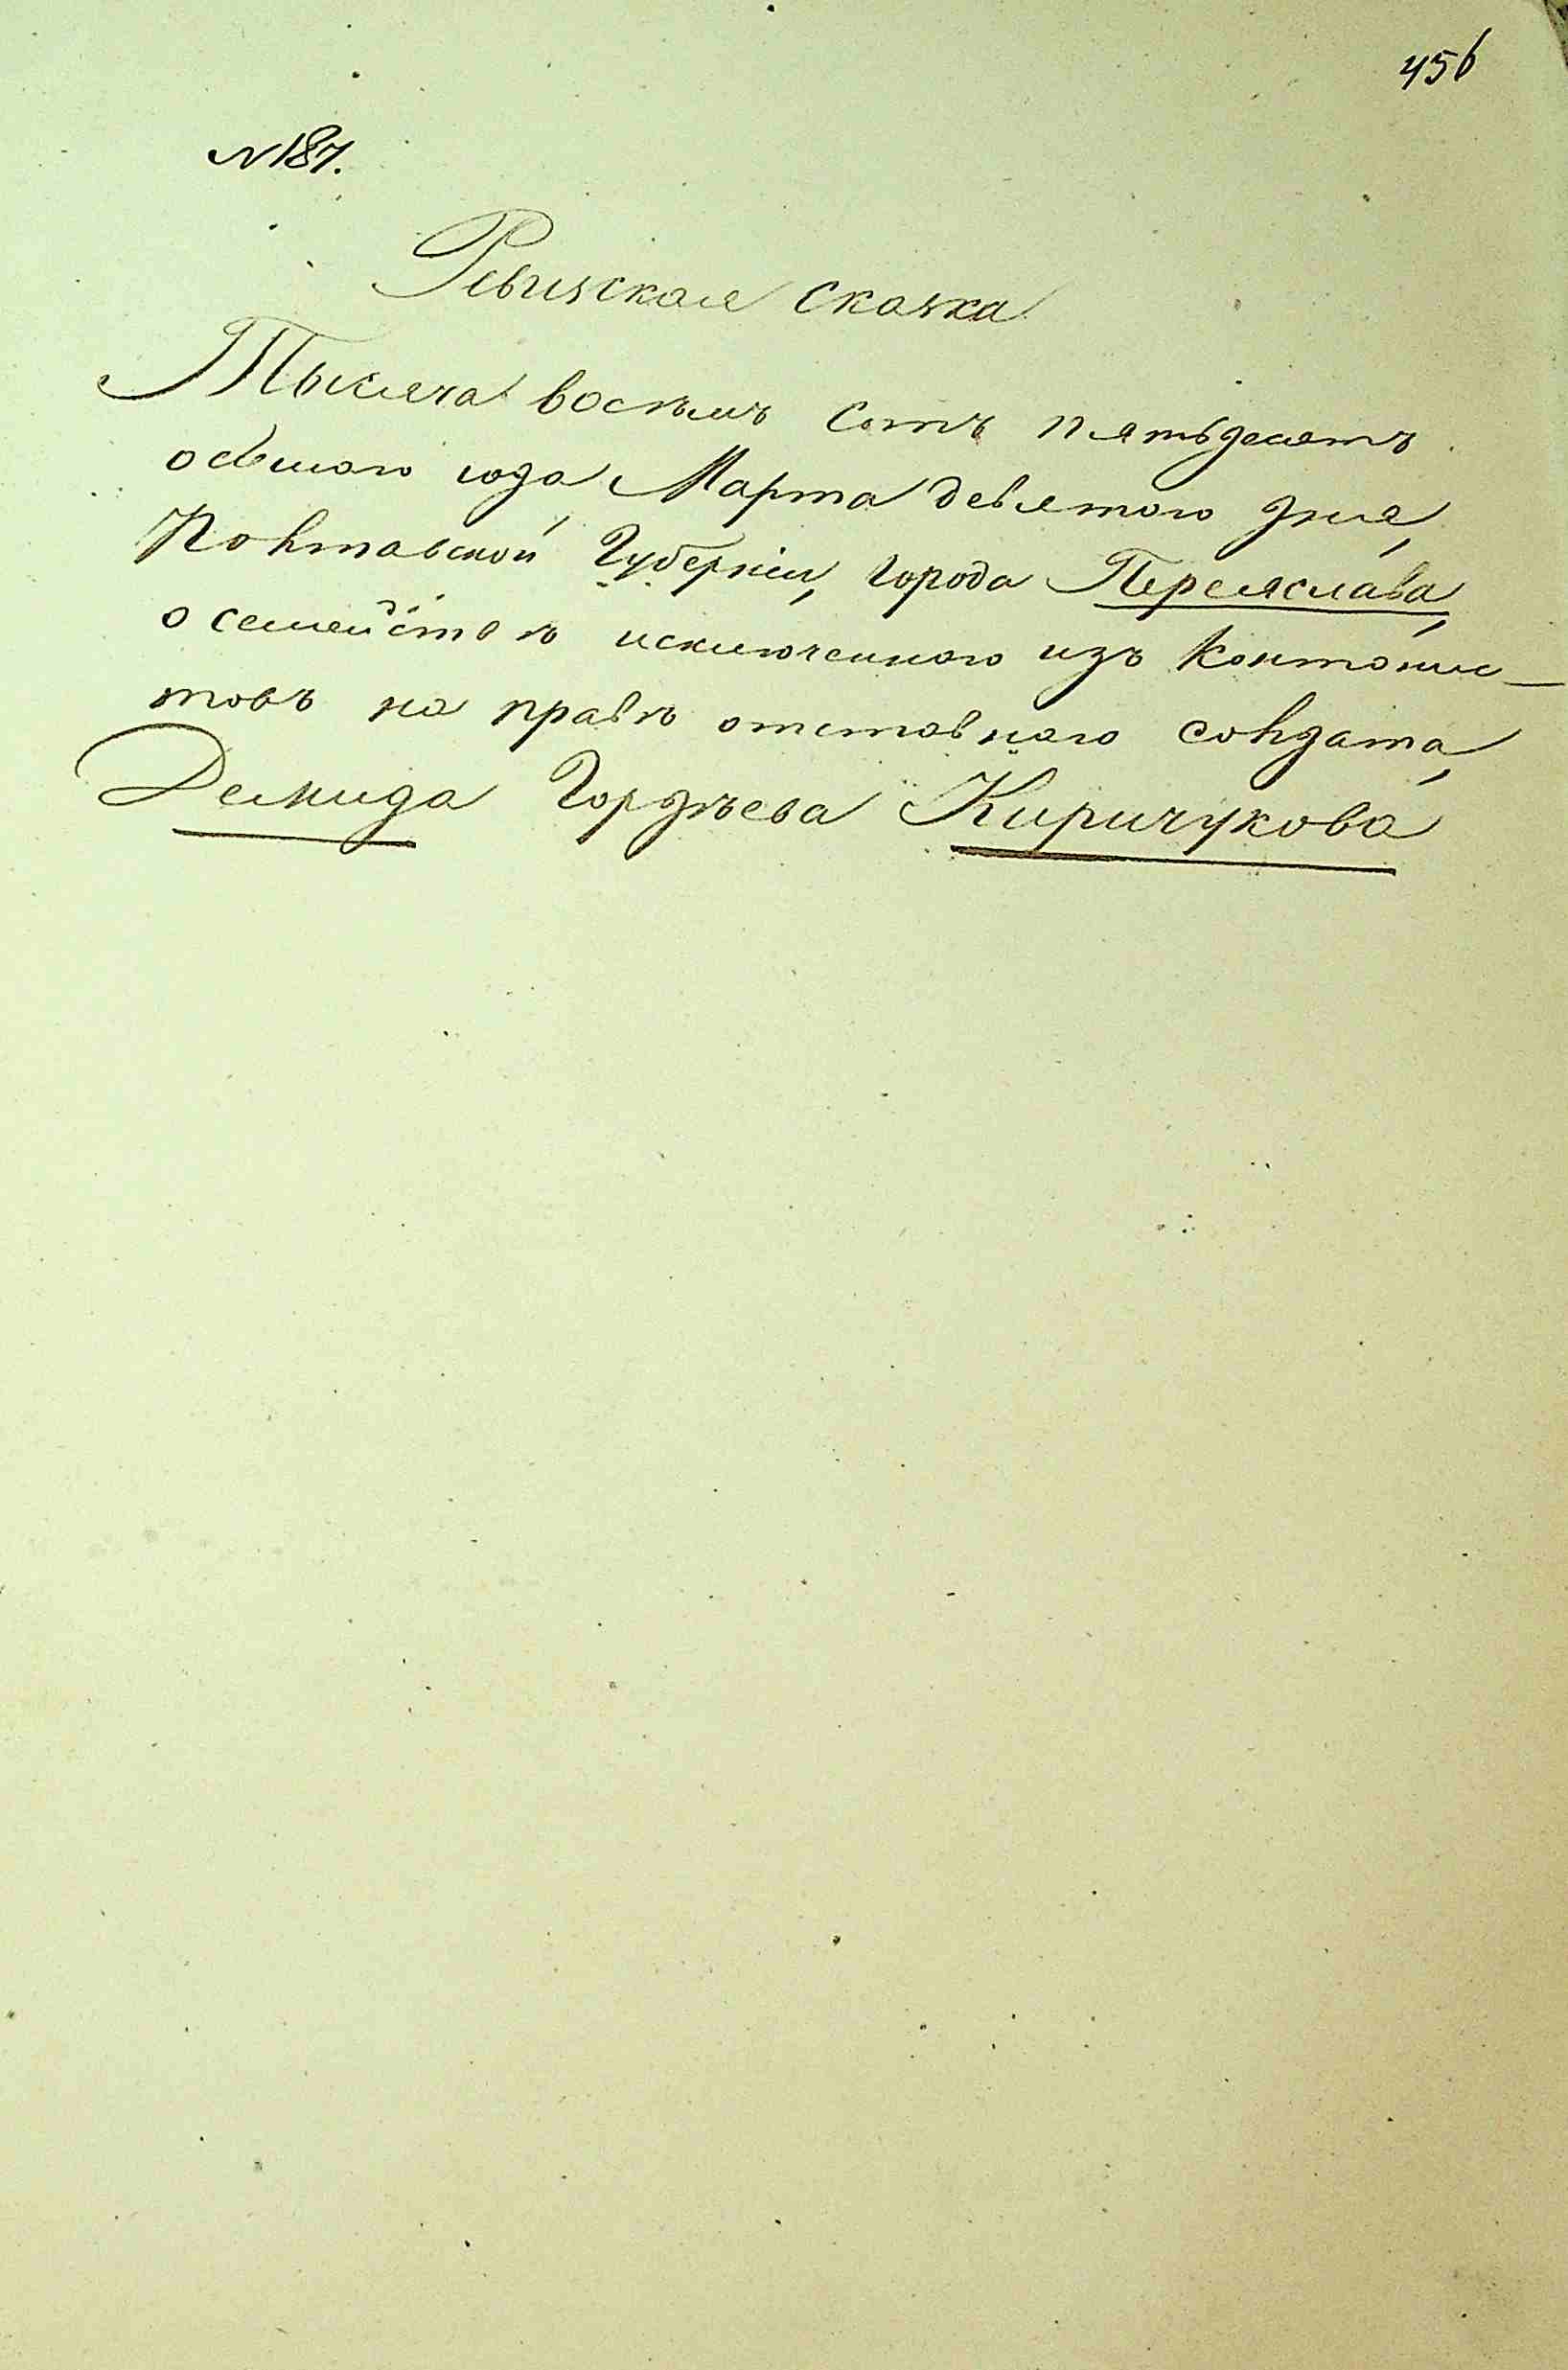 456
№ 187.
Ревизская сказка
Тысяча восѣмъ сотъ пятьдесятъ
осьмаго года Марта девятаго дня,
Полтавской Губерніи, города Переяслава,
о семействѣ исключеннаго изъ Контонис-
товъ на правѣ отставнаго солдата,
Демида Гордѣева Киричукова